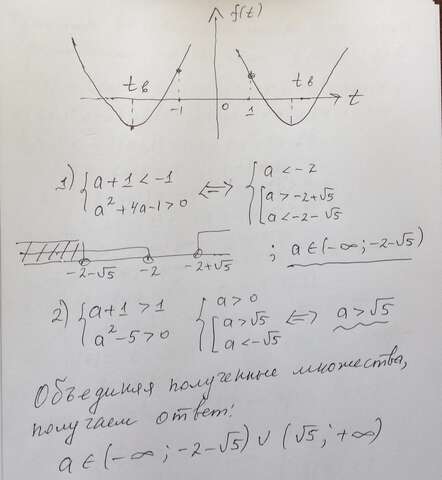 f(t)
t в t в
-1 0 1 t
1) { a + 1 < -1 ⇔ { a < -2
a² + 4a - 1 > 0 [ a > -2+√5
a < -2 - √5
-2-√5 -2 -2+√5 ; a ∈ (-∞; -2-√5)
2) { a + 1 > 1 { a > 0
a² - 5 > 0 [ a > √5 ⇔ a > √5
a < -√5
Объединяя полученные множества,
получаем ответ:
a ∈ (-∞; -2-√5) ∪ (√5; +∞)